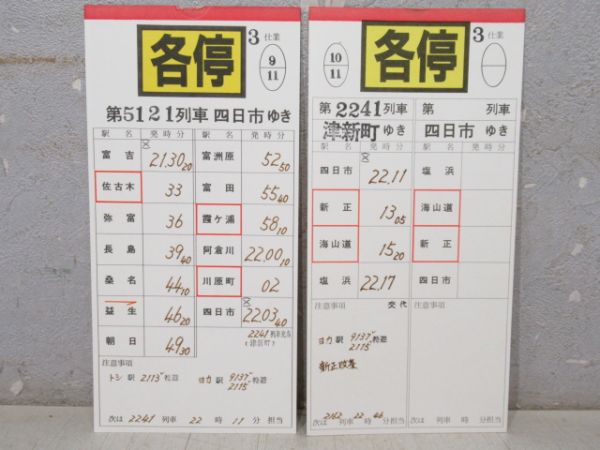 各停
3 仕業
9
11
第5121列車 四日市 ゆき
駅 名 発 時 分 駅 名 発 時 分
富吉 21.30 20 富洲原 52 50
佐古木 33 富田 55 40
弥富 36 霞ケ浦 58 10
長島 39 40 阿倉川 22.00 10
桑名 44 10 川原町 02
益生 46 20 四日市 22.03 40
朝日 49 30
2241
(津新町)
注意事項
トシ駅 2113
ヨカ駅 9137
2115
次は 2241 列車 22 時 11 分担当
各停
3 仕業
10
11
第 2241 列車 第 列車
津新町 ゆき 四日市 ゆき
駅 名 発 時 分 駅 名 発 時 分
四日市 22.11 塩浜
新正 13 05 海山道
海山道 15 20 新正
塩浜 22.17 四日市
注意事項 交代 注意事項
ヨカ駅 9137
2115
新正
次は 2162 列車 22 時 46 分担当 次は 列車 時 分担当